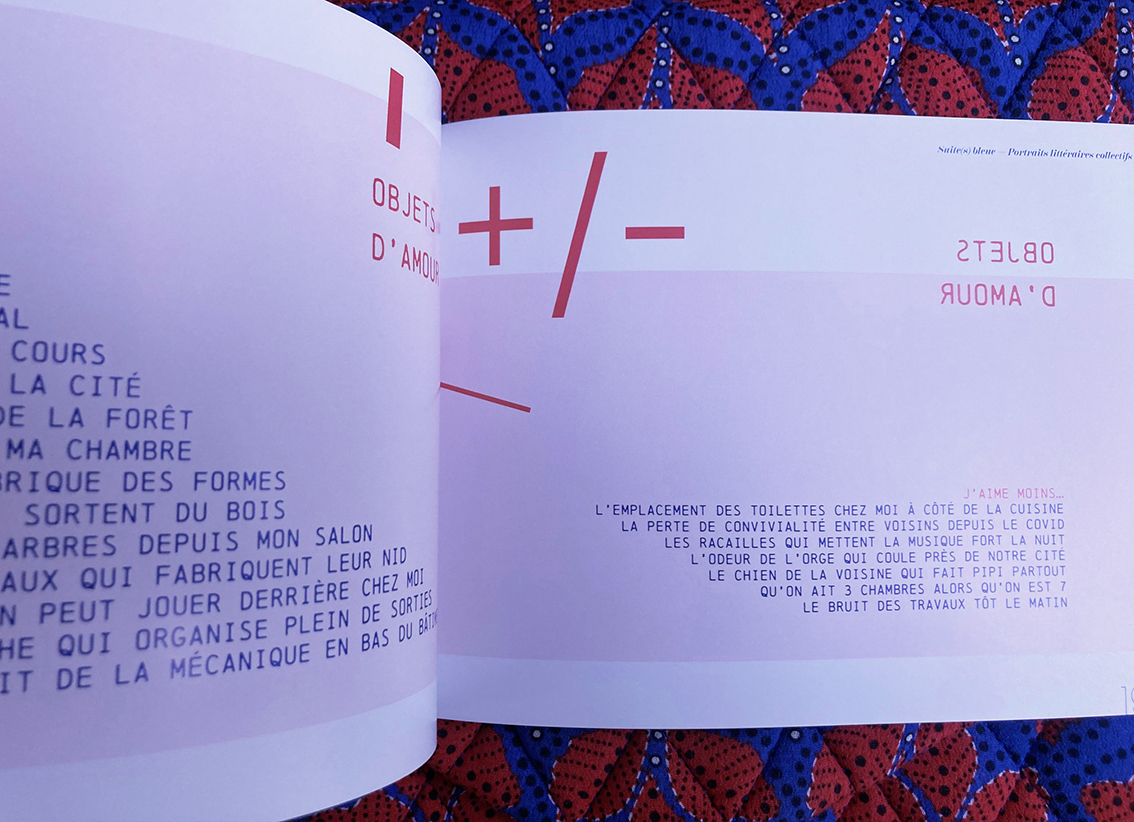 OBJETS
D'AMOUR
E
AL
COURS
LA CITÉ
DE LA FORÊT
MA CHAMBRE
BRIQUE DES FORMES
SORTENT DU BOIS
ARBRES DEPUIS MON SALON
AUX QUI FABRIQUENT LEUR NID
N PEUT JOUER DERRIÈRE CHEZ MOI
HE QUI ORGANISE PLEIN DE SORTIES
IT DE LA MÉCANIQUE EN BAS DU
+/-
Suite(s) bleue — Portraits littéraires collectifs
OBJETS
D'AMOUR
J'AIME MOINS…
L'EMPLACEMENT DES TOILETTES CHEZ MOI À CÔTÉ DE LA CUISINE
LA PERTE DE CONVIVIALITÉ ENTRE VOISINS DEPUIS LE COVID
LES RACAILLES QUI METTENT LA MUSIQUE FORT LA NUIT
L'ODEUR DE L'ORGE QUI COULE PRÈS DE NOTRE CITÉ
LE CHIEN DE LA VOISINE QUI FAIT PIPI PARTOUT
QU'ON AIT 3 CHAMBRES ALORS QU'ON EST 7
LE BRUIT DES TRAVAUX TÔT LE MATIN